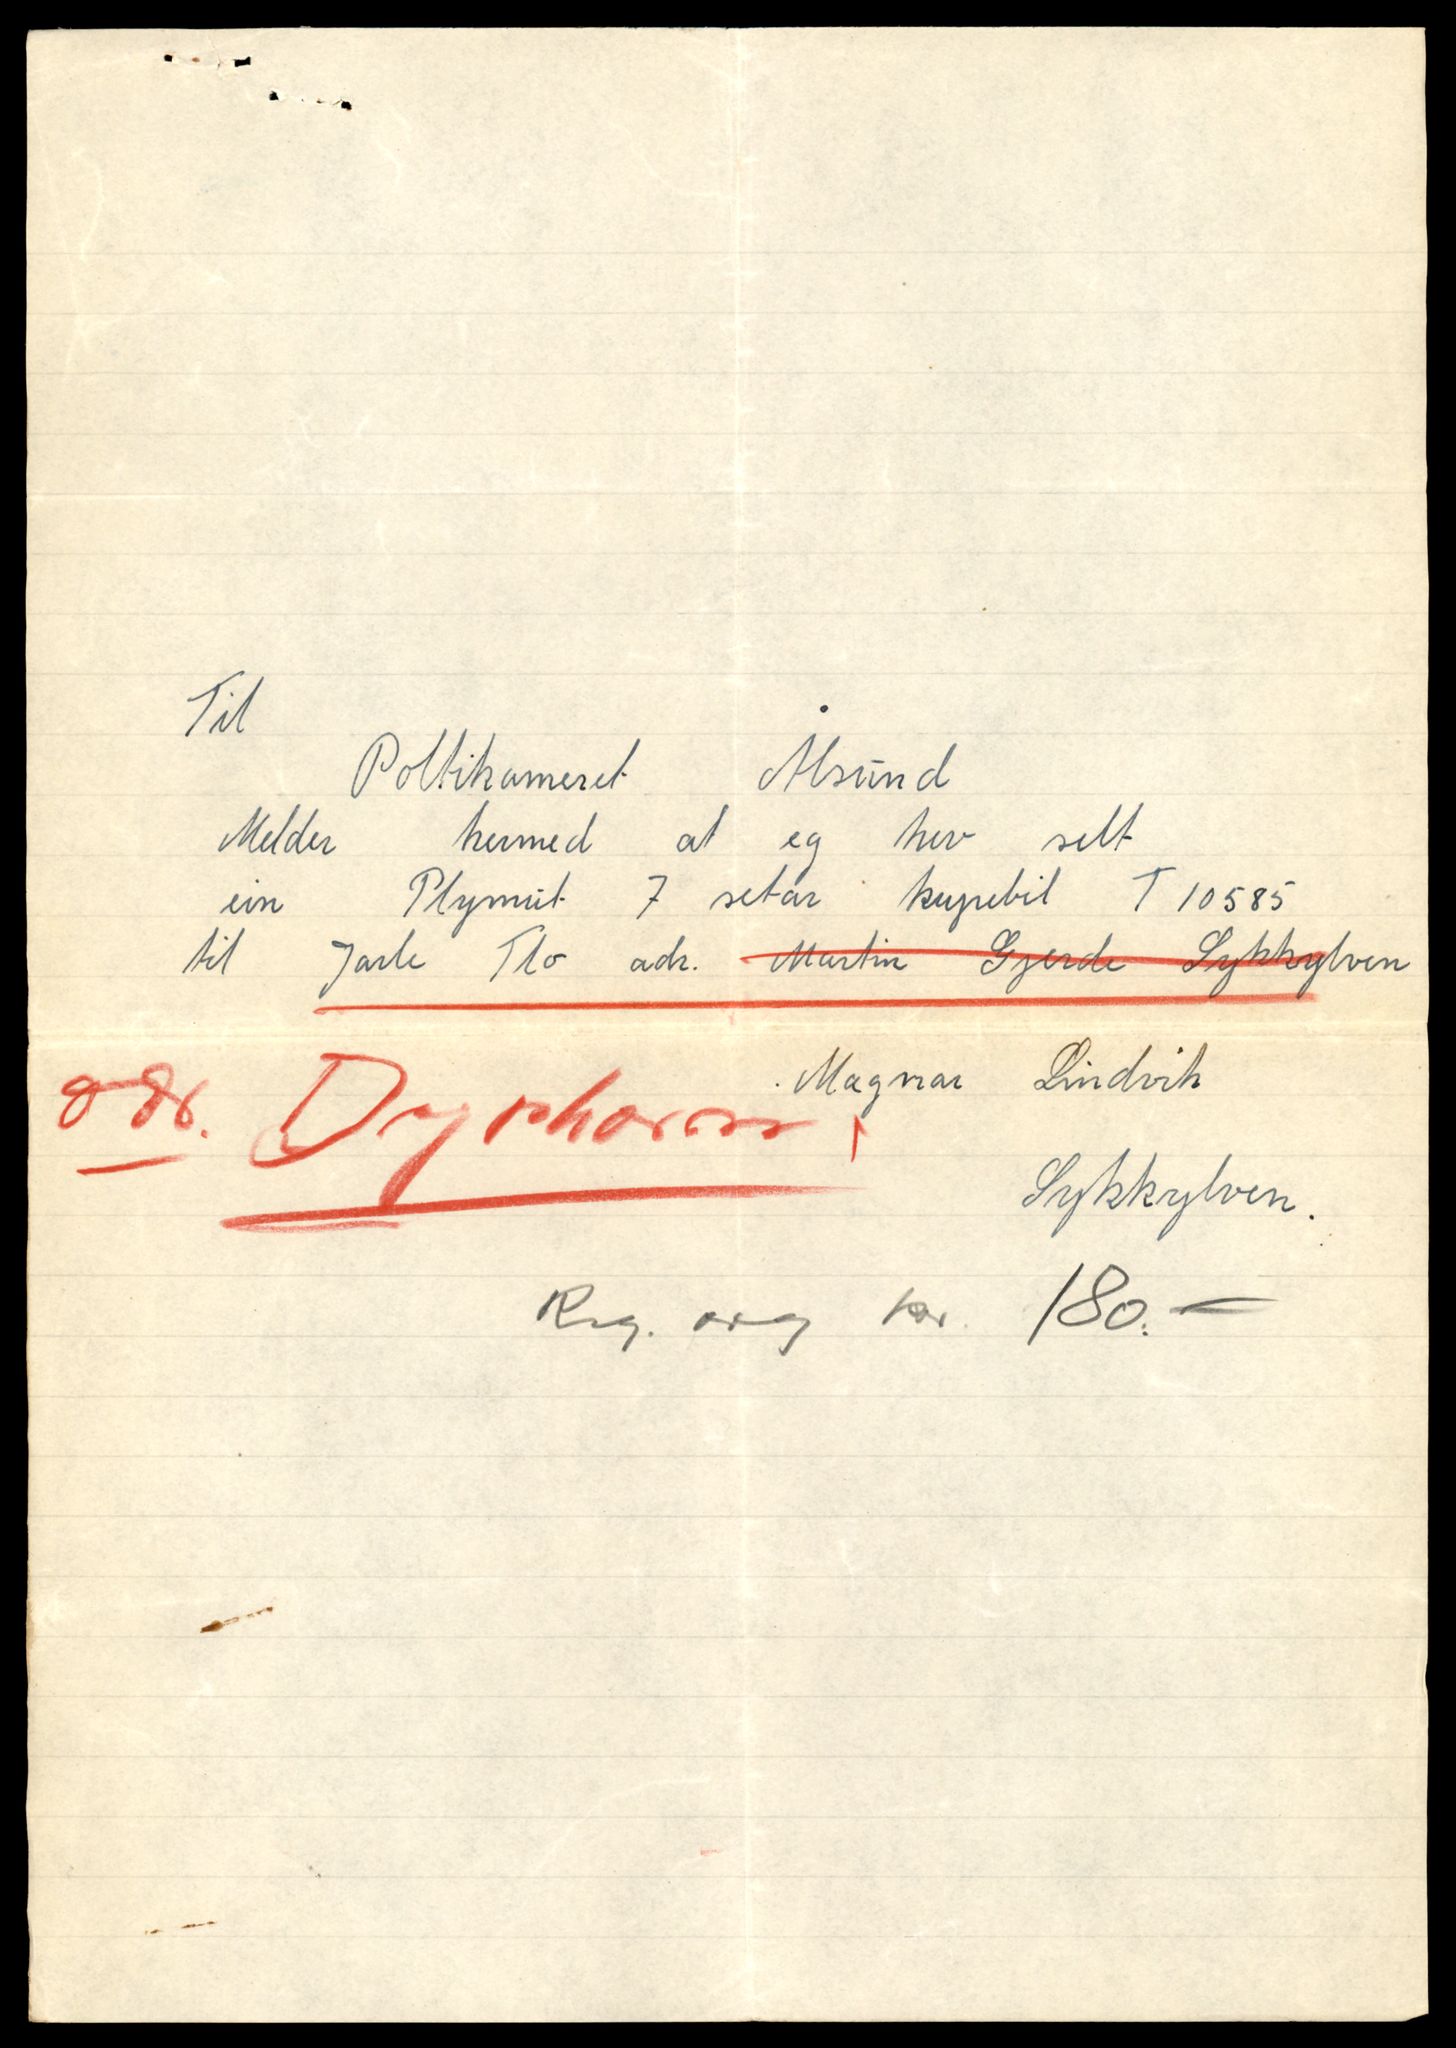 Til
Poltikameret Ålsund
Melder hermed at eg hev selt
ein Plymut 7 setar kuprebil T 10585
til Jarle Flo adr. Martin Gjerde Sykkylven
Magnar Lindvik
adr. Dyrkorn,
Sykkylven.
Reg. avg kr. 180.-